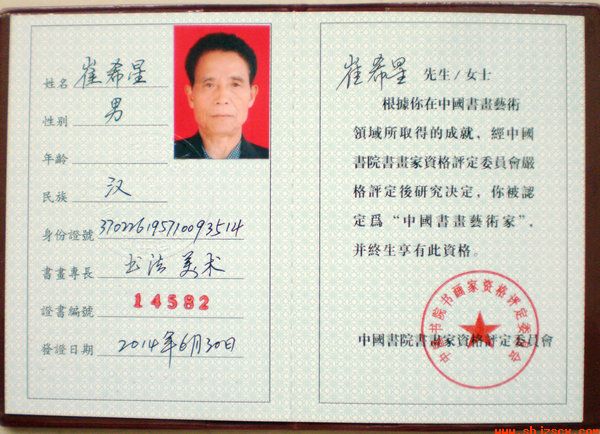 姓名 崔希星
性别 男
年龄
民族 汉
身份證號 370226195710093514
書畫專長 书法 美术
證書編號 14582
發證日期 2014年6月30日
崔希星 先生/女士
根據你在中國書畫藝術
領域所取得的成就，經中國
書院書畫家資格評定委員會嚴
格評定後研究决定，你被認
定爲“中國書畫藝術家”，
并終生享有此資格。
中國书院书画家资格评定委员会
中國書院書畫家資格評定委員會
www.shizscx.com